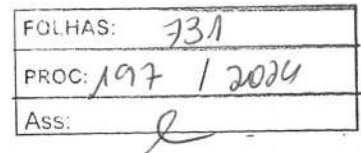 FOLHAS: 731
PROC: 197 / 2024
Ass: